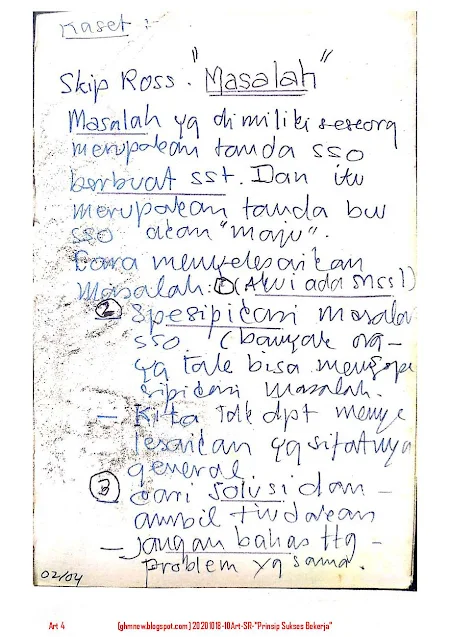 Kaset :
Skip Ross. "Masalah"
Masalah yg dimiliki seseorg
merupakan tanda sso
berbuat sst. Dan itu
merupakan tanda bw
sso akan "maju".
Cara menyelesaikan
Masalah: ① (Akui ada
② Spesipicasi masalah
sso. (banyak org-
yg tak bisa mengspe
sipicasi masalah.
- Kita tdk dpt menye
lesaikan yg sifatnya
general.
③ cari solusi dan -
ambil tindakan
- jangan bahas ttg -
problem yg sama.
02/04
Art 4
[ghmnew.blogspot.com] 20201018-10Art-SR-"Prinsip Sukses Bekerja"